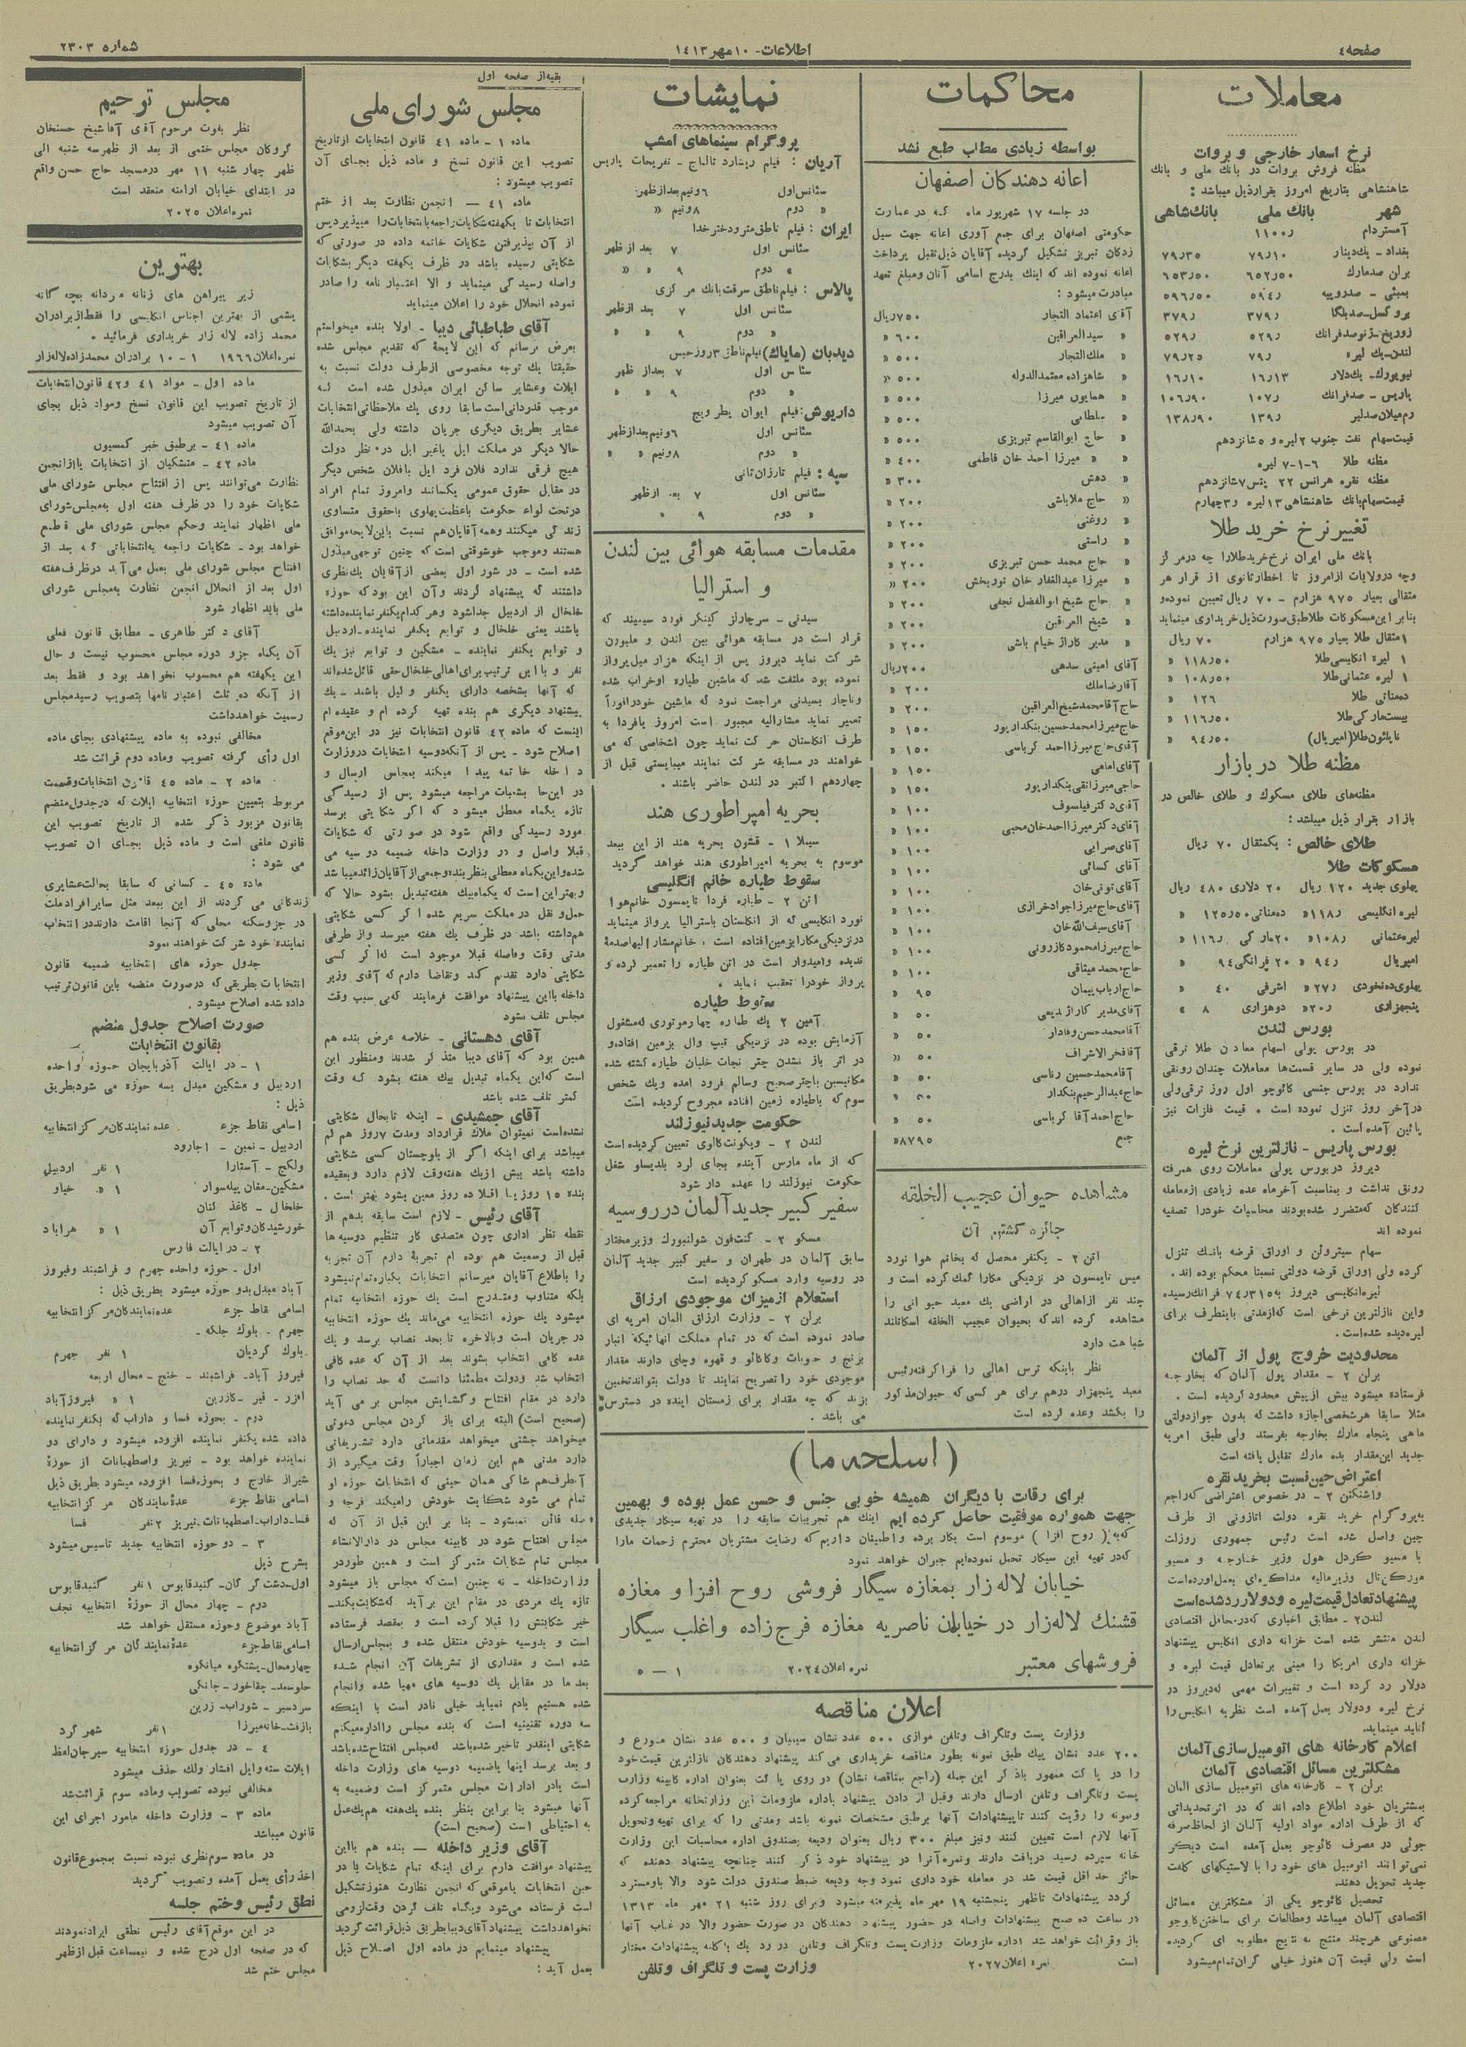 صفحه ٤
اطلاعات - ١٠ مهر ١٤١٣
شماره ٢٣٠٣
معاملات
نرخ اسعار خارجی و بروات
مظنه فروش بروات در بانك ملی و بانك
شاهنشاهی بتاریخ امروز بقرار ذیل میباشد :
شهر بانك ملی بانك شاهی
آمستردام ١١٠٠ر
بغداد - یك دینار ٧٩ر١٠ ٧٩ر٣٥
برلن صد مارك ٦٥٢ر٥٠ ٦٥٣ر٥٠
بمبئی - صد روپیه ٥٩٤ر ٥٩٦ر٥٠
بروکسل - صد بلگا ٣٧٩ر ٣٧٩ر
زوریخ - ژنو صد فرانك ٥٢٩ر ٥٢٩ر
لندن - یك لیره ٧٩ر ٧٩ر٢٥
نیویورك - یك دلار ١٦ر١٣ ١٦ر١٠
پاریس - صد فرانك ١٠٧ر ١٠٦ر٩٠
رم میلان صد لیر ١٣٩ر ١٣٨ر٩٠
قیمت سهام نفت جنوب ٢ لیره و ٥ شانزدهم
مظنه طلا ٦-١-٧ لیره
مظنه نقره هر انس ٢٢ پنس ٧ شانزدهم
قیمت سهام بانك شاهنشاهی ١٣ لیره و ٣ چهارم
تغییر نرخ خرید طلا
بانك ملی ایران نرخ خرید طلا را چه در مرکز
وچه در ولایات از امروز تا اخطار ثانوی از قرار هر
مثقالی بعیار ٩٧٥ هزارم - ٧٠ ریال تعیین نموده و
بنابر این مسکوکات طلا طبق صورت ذیل خریداری مینماید
١ مثقال طلا بعیار ٩٧٥ هزارم ٧٠ ریال
١ لیره انگلیسی طلا ١١٨ر٥٠ «
١ لیره عثمانی طلا ١٠٨ر٥٠ «
ده مناتی طلا ١٢٦ «
بیست مارکی طلا ١١٦ر٥٠ «
ناپلئون طلا (امپریال) ٩٤ر٥٠ «
مظنه طلا در بازار
مظنه های طلای مسکوك و طلای خالص در
بازار بقرار ذیل میباشد :
طلای خالص : یکمثقال ٧٠ ریال
مسکوکات طلا
پهلوی جدید ١٢٠ ریال ٢٠ دلاری ٤٨٠ ریال
لیره انگلیسی ١١٨ر « ده مناتی ١٢٥ر٥٠ «
لیره عثمانی ١٠٨ر « ٢٠ مارکی ١١٦ر «
امپریال ٩٤ر « ٢٠ فرانکی ٩٤ «
پهلوی ده نخودی ٢٧ر « اشرفی ٤٠ «
پنجهزاری ٢٠ر « دوهزاری ٨ «
بورس لندن
در بورس پولی اسهام معادن طلا ترقی
نموده ولی در سایر قسمت ها معاملات چندان رونقی
ندارد در بورس جنسی کائوچو اول روز ترقی ولی
در آخر روز تنزل نموده است . قیمت فلزات نیز
پائین آمده است .
بورس پاریس - نازلترین نرخ لیره
دیروز در بورس پولی معاملات روی همرفته
رونق نداشت و بمناسبت آخر ماه عده زیادی از معامله
کنندگان که متضرر شده بودند محاسبات خود را تصفیه
نموده اند
سهام سیتروئن و اوراق قرضه بانك تنزل
کرده ولی اوراق قرضه دولتی نسبتا محکم بوده اند .
لیره انگلیسی دیروز به ٧٤ر٣١٥ فرانك رسیده
واین نازلترین نرخی است که از مدتی باینطرف برای
لیره دیده شده است .
محدودیت خروج پول از آلمان
برلن ٢ - مقدار پول آلمان که بخارجه
فرستاده میشود بیش از پیش محدود گردیده است .
مثلا سابقا هر شخصی اجازه داشت که بدون جواز دولتی
ماهی پنجاه مارك بخارجه بفرستد ولی طبق امریه
جدید این مقدار بده مارك تقلیل یافته است
اعتراض چین نسبت بخرید نقره
واشنگتن ٢ - در خصوص اعتراضی که راجع
به پروگرام خرید نقره دولت اتازونی از طرف
چین واصل شده است رئیس جمهوری روزلت
با مسیو کردل هول وزیر خارجه و مسیو
مورگنتال وزیر مالیه مذاکره ای بعمل آورده است
پیشنهاد تعادل قیمت لیره و دولار رد شده است
لندن ٢ - مطابق اخباری که در محافل اقتصادی
لندن منتشر شده است خزانه داری انگلیس پیشنهاد
خزانه داری امریکا را مبنی بر تعادل قیمت لیره و
دولار رد کرده است و تغییرات مهمی که دیروز در
نرخ لیره و دولار بعمل آمده است نظریه انگلیس را
تایید مینماید.
اعلام کارخانه های اتومبیل سازی آلمان
مشکلترین مسائل اقتصادی آلمان
برلن ٢ - کارخانه های اتومبیل سازی آلمان
بمشتریان خود اطلاع داده اند که در اثر تحدیداتی
که از طرف اداره مواد اولیه آلمان از لحاظ صرفه
جوئی در مصرف کائوچو بعمل آمده است دیگر
نمی توانند اتومبیل های خود را با لاستیکهای کلفت
جدید تحویل دهند.
تحصیل کائوچو یکی از مشکلترین مسائل
اقتصادی آلمان میباشد و مطالعات برای ساختن کائوچو
مصنوعی هر چند منتج به نتایج مطلوبه ای گردیده
است ولی قیمت آن هنوز خیلی گران تمام میشود
محاکمات
بواسطه زیادی مطالب طبع نشد
اعانه دهندگان اصفهان
در جلسه ١٧ شهریور ماه که در عمارت
حکومتی اصفهان برای جمع آوری اعانه جهت سیل
زدگان تبریز تشکیل گردیده آقایان ذیل تقبل پرداخت
اعانه نموده اند که اینك بدرج اسامی آنان و مبلغ تعهد
مبادرت میشود :
آقای اعتماد التجار ٧٥٠ ریال
« سید العراقین ٦٠٠ «
« ملك التجار ٥٠٠ «
« شاهزاده معتمد الدوله ٥٠٠ «
« همایون میرزا ٥٠٠ «
« سلطانی ٥٠٠ «
« حاج ابوالقاسم تبریزی ٥٠٠ «
« میرزا احمد خان فاطمی ٤٠٠ «
« دهش ٣٠٠ «
« حاج ملاباشی ٢٠٠ «
« روغنی ٢٠٠ «
« راستی ٢٠٠ «
« حاج محمد حسن تبریزی ٢٠٠ «
« میرزا عبدالغفار خان نوربخش ٢٠٠ «
« حاج شیخ ابوالفضل نجفی ٢٠٠ «
« شیخ العراقین ٢٠٠ «
« مدیر کاراژ خیام باشی ٢٠٠ «
آقای امینی سدهی ٢٠٠ ریال
آقا رضا ملك ٢٠٠ «
حاج آقا محمد شیخ العراقین ٢٠٠ «
حاج میرزا محمد حسین بنکدار پور ١٥٠ «
آقای حاج میرزا احمد کرباسی ١٥٠ «
آقای امامی ١٥٠ «
حاجی میرزا تقی بنکدار پور ١٥٠ «
آقای دکتر فیلسوف ١٠٠ «
آقای دکتر میرزا احمد خان محبی ١٠٠ «
آقای صرامی ١٠٠ «
آقای کسائی ١٠٠ «
آقای تونی خان ١٠٠ «
آقای حاج میرزا جواد خرازی ١٠٠ «
آقای سیف الله خان ١٠٠ «
حاج میرزا محمود کازرونی ١٠٠ «
حاج محمد میثاقی ١٠٠ «
حاج ارباب پیمان ٩٥ «
آقای مدیر کاراژ بدیعی ٥٠ «
آقا محمد حسن وفادار ٥٠ «
آقا فخر الاشراف ٥٠ «
آقا محمد حسین رناسی ٥٠ «
حاج عبدالرحیم بنکدار ٥٠ «
حاج احمد آقا کرباسی ٥٠ «
جمع ٨٧٩٥ «
مشاهده حیوان عجیب الخلقه
جائزه کشتن آن
اتن ٢ - یکنفر محصل که بخانم هوا نورد
میس تایمسون در نزدیکی مکارا کمك کرده است و
چند نفر از اهالی در اراضی یك معبد حیوانی را
مشاهده کرده اند که بحیوان عجیب الخلقه اسکاتلند
شباهت دارد
نظر باینکه ترس اهالی را فرا گرفته رئیس
معبد پنجهزار درهم برای هر کسی که حیوان مذکور
را بکشد وعده کرده است
نمایشات
پروگرام سینماهای امشب
آریان : فیلم ریشارد تالماج - تفریحات پاریس
سئانس اول ٦ ونیم بعد از ظهر
« دوم ٨ ونیم «
ایران : فیلم ناطق مترو دختر خدا
سئانس اول ٧ بعد از ظهر
« دوم ٩ « «
پالاس : فیلم ناطق سرقت بانك مرکزی
سئانس اول ٧ بعد از ظهر
« دوم ٩ « «
دیدبان (مایاك) فیلم ناطق ٣ روز حبس
سئانس اول ٧ بعد از ظهر
« دوم ٩ « «
داریوش : فیلم ایوان پطرویچ
سئانس اول ٦ ونیم بعد از ظهر
« دوم ٨ ونیم « «
سپه : فیلم تارزان ثانی
سئانس اول ٧ بعد از ظهر
« دوم ٩ «
مقدمات مسابقه هوائی بین لندن
و استرالیا
سیدنی - سرچارلز کینگز فورد سمیث که
قرار است در مسابقه هوائی بین لندن و ملبورن
شرکت نماید دیروز پس از اینکه هزار میل پرواز
نموده بود ملتفت شد که ماشین طیاره او خراب شده
وناچار بسیدنی مراجعت نمود که ماشین خود را فوراً
تعمیر نماید مشارالیه مجبور است امروز یا فردا به
طرف انگلستان حرکت نماید چون اشخاصی که می
خواهند در مسابقه شرکت نمایند میبایستی قبل از
چهاردهم اکتبر در لندن حاضر باشند .
بحریه امپراطوری هند
سیملا ١ - قشون بحریه هند از این ببعد
موسوم به بحریه امپراطوری هند خواهد گردید
سقوط طیاره خانم انگلیسی
اتن ٢ - طیاره فردا تایمسون خانم هوا
نورد انگلیسی که از انگلستان باسترالیا پرواز مینماید
در نزدیکی مکارا بزمین افتاده است ، خانم مشارالیها صدمه
ندیده و امیدوار است در اتن طیاره را تعمیر کرده و
پرواز خود را تعقیب نماید .
سقوط طیاره
آمین ٢ یك طیاره چهار موتوری که مشغول
آزمایش بوده در نزدیکی تیپ وال بزمین افتاده و
در اثر باز نشدن چتر نجات خلبان طیاره کشته شده
مکانیسین باچتر صحیح وسالم فرود آمده ویك شخص
سوم که باطیاره زمین افتاده مجروح گردیده است
حکومت جدید نیوزلند
لندن ٢ - ویکونت کالوی تعیین گردیده است
که از ماه مارس آینده بجای لرد بلدیسلو شغل
حکومت نیوزلند را عهده دار شود
سفیر کبیر جدید آلمان در روسیه
مسکو ٢ - کنت فون شولنبورك وزیر مختار
سابق آلمان در طهران و سفیر کبیر جدید آلمان
در روسیه وارد مسکو گردیده است
استعلام از میزان موجودی ارزاق
برلن ٢ - وزارت ارزاق آلمان امریه ای
صادر نموده است که در تمام مملکت آنهائیکه انبار
برنج و حبوبات و کاکائو و قهوه و چای دارند مقدار
موجودی خود را تصریح نمایند تا دولت بتواند تخمین
بزند که چه مقدار برای زمستان آینده در دسترس
می باشد .
(اسلحه ما)
برای رقابت با دیگران همیشه خوبی جنس و حسن عمل بوده و بهمین
جهت همواره موفقیت حاصل کرده ایم اینك هم تجربیات سابقه را در تهیه سیگار جدیدی
که به (روح افزا) موسوم است بکار برده و اطمینان داریم که رضایت مشتریان محترم زحمات ما را
که در تهیه این سیگار تحمل نموده ایم جبران خواهد نمود
خیابان لاله زار بمغازه سیگار فروشی روح افزا و مغازه
قشنك لاله زار در خیابان ناصریه مغازه فرج زاده و اغلب سیگار
فروشهای معتبر
نمره اعلان ٢٠٢٤ ١ - ٥
اعلان مناقصه
وزارت پست و تلگراف و تلفن موازی ٥٠٠ عدد نشان سیمبان و ٥٠٠ عدد نشان موزع و
٢٠٠ عدد نشان پیك طبق نمونه بطور مناقصه خریداری می کند پیشنهاد دهندگان نازلترین قیمت خود
را در پاکت ممهور باذکر این جمله (راجع بمناقصه نشان) در روی پاکت بعنوان اداره کابینه وزارت
پست و تلگراف و تلفن ارسال دارند وقبل از دادن پیشنهاد باداره ملزومات این وزارتخانه مراجعه کرده
ونمونه را رؤیت کنند تا پیشنهادات آنها برطبق مشخصات نمونه باشد و مدتی را که برای تهیه و تحویل
آنها لازم است تعیین کنند ونیز مبلغ ٣٠٠ ریال بعنوان ودیعه بصندوق اداره محاسبات این وزارت
خانه سپرده رسید دریافت دارند ونمره آنرا در پیشنهاد خود ذکر کنند چنانچه پیشنهاد دهنده که
حائز حد اقل قیمت شد در معامله خود داری نمود وجه ودیعه ضبط صندوق دولت شود والا باو مسترد
گردد پیشنهادات تا ظهر پنجشنبه ١٩ مهر ماه پذیرفته میشود وبرای روز شنبه ٢١ مهر ماه ١٣١٣
در ساعت ده صبح پیشنهادات واصله در حضور پیشنهاد دهندگان در صورت حضور والا در غیاب آنها
باز وقرائت خواهد شد اداره ملزومات وزارت پست و تلگراف و تلفن در رد یك یا کلیه پیشنهادات مختار
است نمره اعلان ٢٠٢٧ وزارت پست و تلگراف و تلفن
بقیه از صفحه اول
مجلس شورای ملی
ماده ١ - ماده ٤١ قانون انتخابات از تاریخ
تصویب این قانون نسخ و ماده ذیل بجای آن
تصویب میشود :
ماده ٤١ - انجمن نظارت بعد از ختم
انتخابات تا یکهفته شکایات راجعه بانتخابات را میپذیرد پس
از آن بپذیرفتن شکایات خاتمه داده در صورتی که
شکایتی رسیده باشد در ظرف یکهفته دیگر بشکایات
واصله رسیدگی مینماید و الا اعتبار نامه را صادر
نموده انحلال خود را اعلان مینماید
آقای طباطبائی دیبا - اولا بنده میخواستم
بعرض برسانم که این لایحه که تقدیم مجلس شده
حقیقتا یك توجه مخصوصی از طرف دولت نسبت به
ایلات وعشایر ساکن ایران مبذول شده است که
موجب قدردانی است سابقا روی یك ملاحظاتی انتخابات
عشایر بطریق دیگری جریان داشته ولی بحمدالله
حالا دیگر در مملکت ایل یا غیر ایل در نظر دولت
هیچ فرقی ندارد فلان فرد ایل بافلان شخص دیگر
در مقابل حقوق عمومی یکسانند وامروز تمام افراد
در تحت لواء حکومت باعظمت پهلوی باحقوق متساوی
زندگی میکنند وهمه آقایان هم نسبت باین لایحه موافق
هستند وموجب خوشوقتی است که چنین توجهی مبذول
شده است - در شور اول بعضی از آقایان یك نظری
داشتند که پیشنهاد کردند وآن این بود که حوزه
خلخال از اردبیل جدا شود وهر کدام یکنفر نماینده داشته
باشند یعنی خلخال و توابع یکنفر نماینده - اردبیل
و توابع یکنفر نماینده - مشکین و توابع نیز یك
نفر و با این ترتیب برای اهالی خلخال حقی قائل شده اند
که آنها بشخصه دارای یکنفر وکیل باشند - یك
پیشنهاد دیگری هم بنده تهیه کرده ام و عقیده ام
اینست که ماده ٤٢ قانون انتخابات نیز در این موقع
اصلاح شود - پس از آنکه دوسیه انتخابات در وزارت
داخله خاتمه پیدا میکند بمجلس ارسال و
در این جا بشعبات مراجعه میشود پس از رسیدگی
تازه یکماه معطل میشود که اگر شکایتی برسد
مورد رسیدگی واقع شود در صورتی که شکایات
قبلا واصل و در وزارت داخله ضمیمه دوسیه می
شده و این یکماه معطلی بنظر بنده و جمعی از آقایان زائد میباشد
وبهتر این است که یکماه بیك هفته تبدیل بشود حالا که
حمل و نقل در مملکت سریع شده اگر کسی شکایتی
هم داشته باشد در ظرف یك هفته میرسد و از طرفی
مدتی وقت وفاصله قبلا موجود است که اگر کسی
شکایتی دارد تقدیم کند وتقاضا دارم که آقای وزیر
داخله بااین پیشنهاد موافقت فرمایند که بی سبب وقت
مجلس تلف نشود
آقای دهستانی - خلاصه عرض بنده هم
همین بود که آقای دیبا متذکر شدند ومنظور این
است که این یکماه تبدیل بیك هفته بشود که وقت
کمتر تلف شده باشد
آقای جمشیدی - اینکه تابحال شکایتی
نشده است نمیتوان ملاك قرارداد ومدت ٧ روز هم کم
میباشد برای اینکه اگر از بلوچستان کسی شکایتی
داشته باشد بیش از یك هفته وقت لازم دارد وبعقیده
بنده ١٥ روز یا اقلا ده روز معین بشود بهتر است .
آقای رئیس - لازم است سابقه بدهم از
نقطه نظر اداری چون متصدی کار تنظیم دوسیه ها
قبل از رسمیت هم بوده ام تجربه دارم آن تجربه
را باطلاع آقایان میرسانم انتخابات یکباره تمام نمیشود
بلکه متناوب ومتدرج است یك حوزه انتخابیه تمام
میشود یك حوزه انتخابیه می ماند یك حوزه انتخابیه
در جریان است وبالاخره تا بحد نصاب برسد و یك
عده کافی انتخاب بشوند بعد از آن که عده کافی
انتخاب شد ودولت مطمئنا دانست که حد نصاب را
دارد در مقام افتتاح وگشایش مجلس بر می آید
(صحیح است) البته برای باز کردن مجلس دعوتی
میخواهد جشنی میخواهد مقدماتی دارد تشریفاتی
دارد مدتی هم این زمان اجباراً وقت میگیرد از
آنطرف هم شاکی همان حینی که انتخابات حوزه او
تمام می شود شکایت خودش را میکند فرجه و
فاصله قائل نمیشود - بنا بر این قبل از آن که
مجلس افتتاح شود در کابینه مجلس در دارالانشاء
مجلس تمام شکایات متمرکز است و همین طور در
وزارت داخله - نه چنین است که مجلس باز میشود
تازه یك مردی در مقام این بر آید که شکایت بکند -
خیر شکایتش را قبلا کرده است و بمقصد فرستاده
است و بدوسیه خودش منتقل شده و بمجلس ارسال
شده است و مقداری از تشریفات آن انجام شده
بعد ما در مقابل یك دوسیه های مهیا شده وانجام
شده هستیم یادم نمیاید خیلی نادر است با اینکه
سه دوره تقنینیه است که بنده مجلس را اداره میکنم
شکایتی اینقدر تاخیر شده باشد که مجلس افتتاح شده باشد
و بعد برسد اینها یا ضمیمه دوسیه های وزارت داخله
است یا در ادارات مجلس متمرکز است وضمیمه به
آنها میشود بنا بر این بنظر بنده یك هفته هم یك عمل
به احتیاطی است (صحیح است)
آقای وزیر داخله - بنده هم بااین
پیشنهاد موافقت دارم برای اینکه تمام شکایات یا در
حین انتخابات یا موقعی که انجمن نظارت هنوز تشکیل
است فرستاده می شود ویکماه تلف کردن وقت لزومی
نخواهد داشت پیشنهاد آقای دیبا بطریق ذیل قرائت گردید
پیشنهاد مینمایم در ماده اول اصلاح ذیل
بعمل آید :
مجلس ترحیم
نظر بفوت مرحوم آقای آقا شیخ حسنخان
گروکان مجلس ختمی از بعد از ظهر سه شنبه الی
ظهر چهارشنبه ١١ مهر در مسجد حاج حسن واقع
در ابتدای خیابان ارامنه منعقد است
نمره اعلان ٢٠٢٥
بهترین
زیر پیراهن های زنانه مردانه بچه گانه
پشمی از بهترین اجناس انگلیسی را فقط از برادران
محمد زاده لاله زار خریداری فرمائید .
نمره اعلان ١٩٦٦ ١ - ١٠ برادران محمد زاده لاله زار
ماده اول - مواد ٤١ و ٤٢ قانون انتخابات
از تاریخ تصویب این قانون نسخ ومواد ذیل بجای
آن تصویب میشود
ماده ٤١ - برطبق خبر کمسیون
ماده ٤٢ - متشکیان از انتخابات یا از انجمن
نظارت می توانند پس از افتتاح مجلس شورای ملی
شکایات خود را در ظرف هفته اول به مجلس شورای
ملی اظهار نمایند وحکم مجلس شورای ملی قاطع
خواهد بود - شکایات راجعه به انتخاباتی که بعد از
افتتاح مجلس شورای ملی بعمل می آید در ظرف هفته
اول بعد از انحلال انجمن نظارت به مجلس شورای
ملی باید اظهار شود
آقای دکتر طاهری - مطابق قانون فعلی
آن یکماه جزو دوره مجلس محسوب نیست و حال
این یکهفته هم محسوب نخواهد بود و فقط بعد
از آنکه دو ثلث اعتبار نامها بتصویب رسید مجلس
رسمیت خواهد داشت
مخالفی نبوده به ماده پیشنهادی بجای ماده
اول رأی گرفته تصویب وماده دوم قرائت شد
ماده ٢ - ماده ٤٥ قانون انتخابات وقسمت
مربوط بتعیین حوزه انتخابیه ایلات که در جدول منضم
بقانون مزبور ذکر شده از تاریخ تصویب این
قانون ملغی است و ماده ذیل بجای آن تصویب
می شود :
ماده ٤٥ - کسانی که سابقا بحالت عشایری
زندگانی می کردند از این ببعد مثل سایر افراد ملت
در جزو سکنه محلی که آنجا اقامت دارند در انتخاب
نماینده خود شرکت خواهند نمود
جدول حوزه های انتخابیه ضمیمه قانون
انتخابات بطریقی که در صورت منضمه باین قانون ترتیب
داده شده اصلاح میشود .
صورت اصلاح جدول منضم
بقانون انتخابات
١ - در ایالت آذربایجان حوزه واحده
اردبیل و مشکین مبدل بسه حوزه می شود بطریق
ذیل :
اسامی نقاط جزء عده نمایندگان مرکز انتخابیه
اردبیل - نمین - اجارود
ولکیج - آستارا ١ نفر اردبیل
مشکین - مغان پیله سوار ١ « خیاو
خلخال - کاغذ کنان
خورشید کان و توابع آن ١ « هراباد
٢ - در ایالت فارس
اول - حوزه واحده جهرم و فراشبند وفیروز
آباد مبدل بدو حوزه میشود بطریق ذیل :
اسامی نقاط جزء عده نمایندگان مرکز انتخابیه
جهرم - بلوك جلگه -
بلوك کردیان ١ نفر جهرم
فیروز آباد - فراشبند - خنج - محال اربعه
افزر - قیر - کارزین ١ « فیروزآباد
دوم - بحوزه فسا و داراب که یکنفر نماینده
داده شده یکنفر نماینده افزوده میشود و دارای دو
نماینده خواهد بود - نیریز واصطهبانات از حوزه
شیراز خارج و بحوزه فسا افزوده میشود بطریق ذیل
اسامی نقاط جزء عده نمایندگان مرکز انتخابیه
فسا - داراب - اصطهبانات - نیریز ٢ نفر فسا
٣ - دو حوزه انتخابیه جدید تاسیس میشود
بشرح ذیل
اول - دشت گرگان - گنبد قابوس ١ نفر گنبد قابوس
دوم - چهار محال از حوزه انتخابیه نجف
آباد موضوع وحوزه مستقل خواهد شد
اسامی نقاط جزء عده نمایندگان مرکز انتخابیه
چهارمحال - پشتکوه میانکوه
سردسیر - شوراب - زرین
بازفت - خانه میرزا ١ نفر شهر کرد
٤ - در جدول حوزه انتخابیه سیرجان لفظ
ایلات سته وایل افشار ولك حذف میشود
مخالفی نبوده تصویب وماده سوم قرائت شد
ماده ٣ - وزارت داخله مامور اجرای این
قانون میباشد
در ماده سوم نظری نبوده نسبت بمجموع قانون
اخذ رأی بعمل آمده و تصویب گردید
نطق رئیس وختم جلسه
در این موقع آقای رئیس نطقی ایراد نمودند
که در صفحه اول درج شده و نیم ساعت قبل از ظهر
مجلس ختم شد